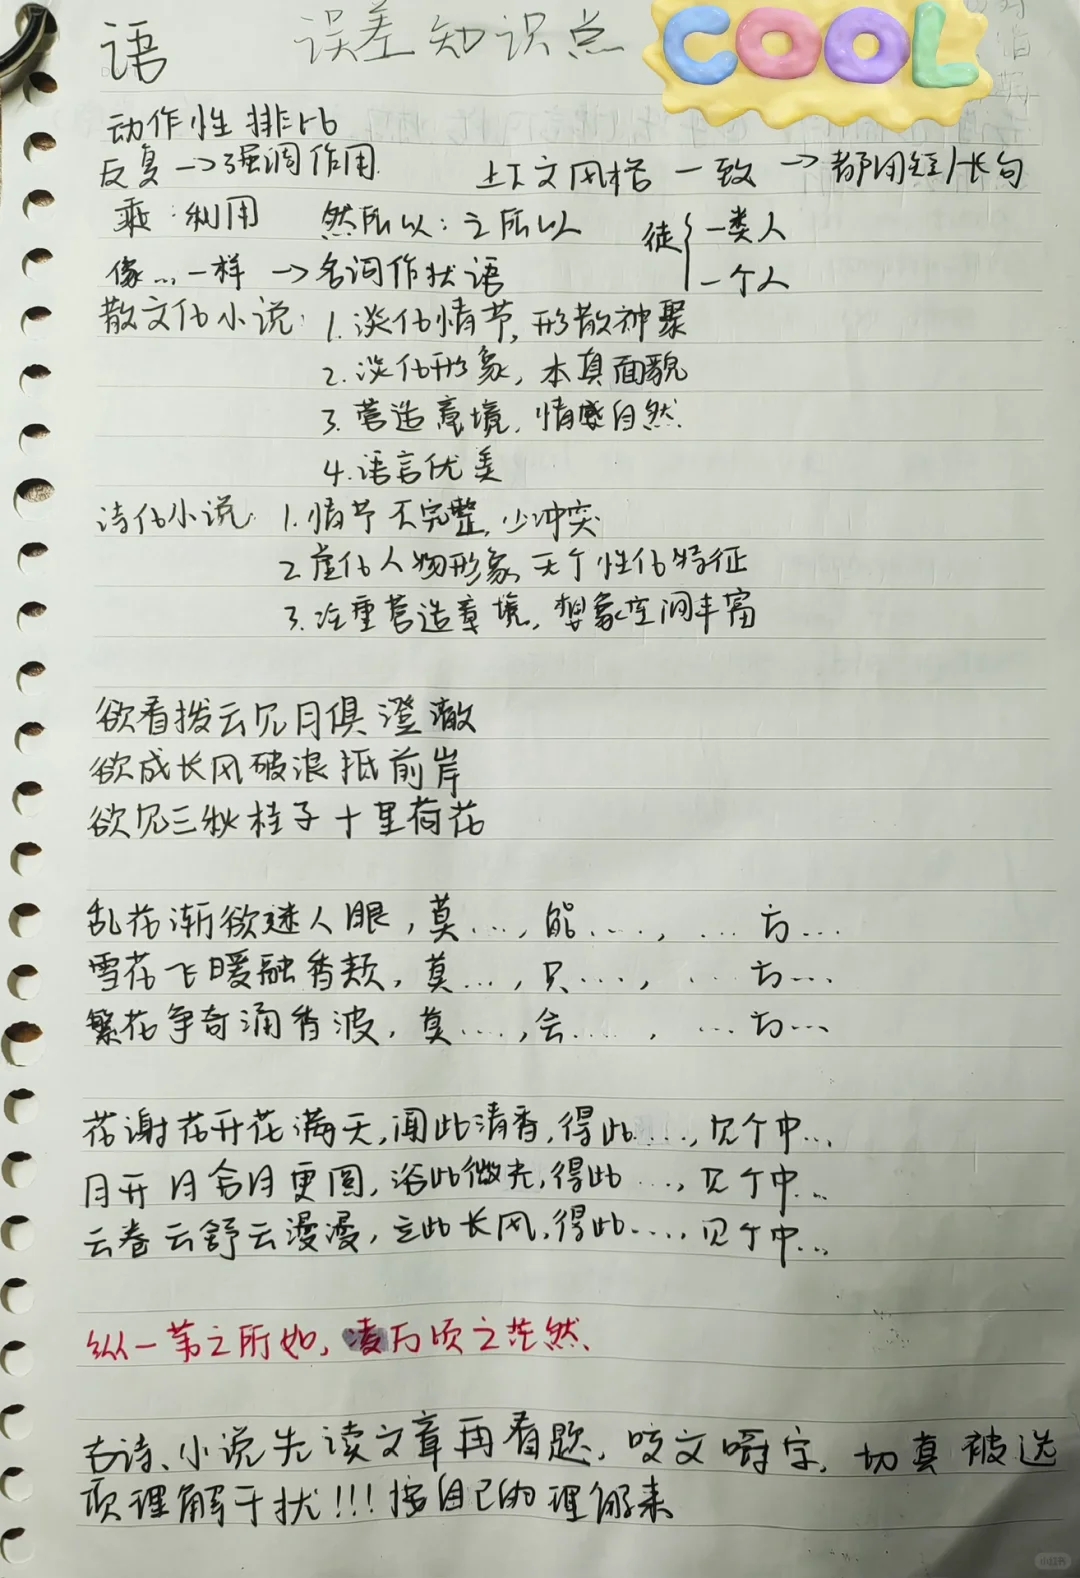 语 误差知识点 COOL
动作性排比
反复→强调作用 上下文风格一致→都用短/长句
乘:利用 然所以:之所以 徒{一类人
像…一样→名词作状语 一个人
散文化小说:1.淡化情节,形散神聚
2.淡化形象,本真面貌
3.营造意境,情感自然
4.语言优美
诗化小说:1.情节不完整,少冲突
2.虚化人物形象,无个性化特征
3.注重营造意境,想象空间丰富
欲看拨云见月俱澄澈
欲成长风破浪抵前岸
欲见三秋桂子十里荷花
乱花渐欲迷人眼,莫…,能…,…方…
雪花飞暖融香颊,莫…,只…,…方…
繁花争奇涌香波,莫…,会…,…方…
花谢花开花满天,闻此清香,得此…,见个中…
月开月合月更圆,浴此微光,得此…,见个中…
云卷云舒云漫漫,立此长风,得此…,见个中…
纵一苇之所如,凌万顷之茫然
古诗、小说先读文章再看题,咬文嚼字,切莫被选
项理解干扰!!!按自己的理解来
小红书